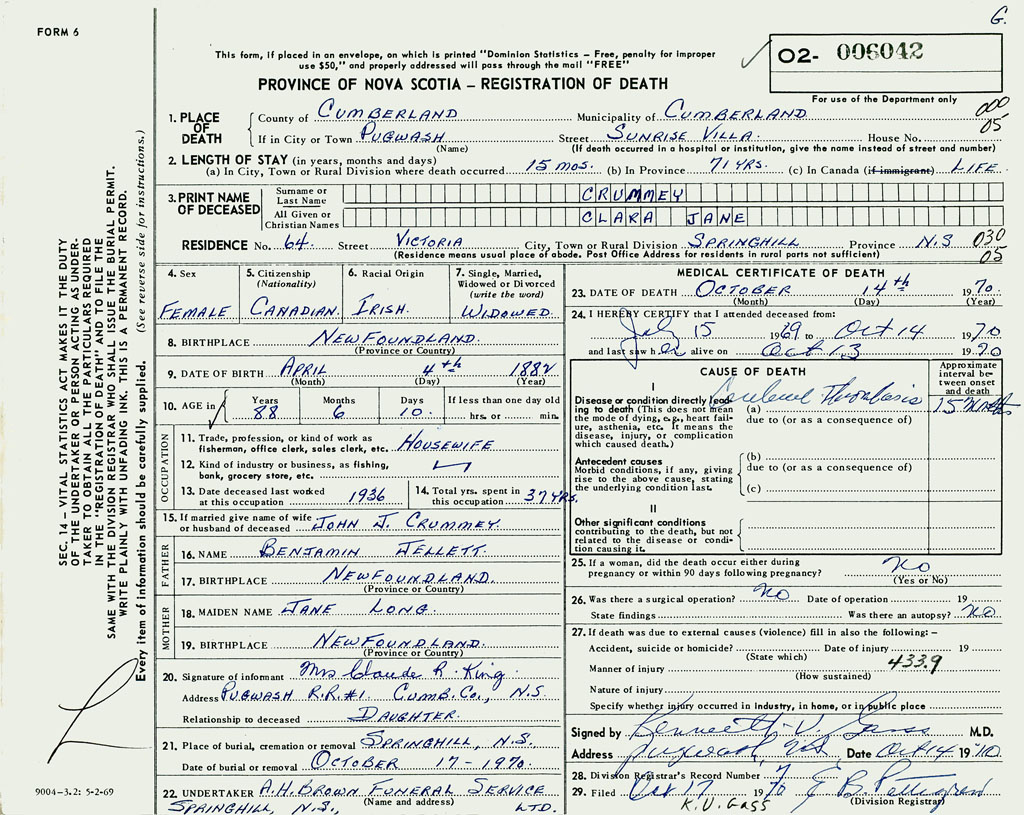 G.
FORM 6
This form, if placed in an envelope, on which is printed "Dominion Statistics – Free, penalty for improper
use $50," and properly addressed will pass through the mail "FREE"
O2- 006042
PROVINCE OF NOVA SCOTIA – REGISTRATION OF DEATH
For use of the Department only
1. PLACE OF DEATH
County of CUMBERLAND Municipality of CUMBERLAND 000
If in City or Town PUGWASH Street SUNRISE VILLA House No. 05
(Name) (If death occurred in a hospital or institution, give the name instead of street and number)
2. LENGTH OF STAY (in years, months and days)
(a) In City, Town or Rural Division where death occurred 15 MOS. (b) In Province 71 YRS. (c) In Canada (if immigrant) LIFE
3. PRINT NAME OF DECEASED
Surname or Last Name CRUMMEY
All Given or Christian Names CLARA JANE
RESIDENCE No. 64 Street VICTORIA City, Town or Rural Division SPRINGHILL Province N.S 030
(Residence means usual place of abode. Post Office Address for residents in rural parts not sufficient) 05
4. Sex FEMALE
5. Citizenship (Nationality) CANADIAN
6. Racial Origin IRISH
7. Single, Married, Widowed or Divorced (write the word) WIDOWED
8. BIRTHPLACE NEWFOUNDLAND
(Province or Country)
9. DATE OF BIRTH APRIL 4th 1882
(Month) (Day) (Year)
10. AGE in Years 88 Months 6 Days 10 If less than one day old
hrs. or min.
OCCUPATION
11. Trade, profession, or kind of work as
fisherman, office clerk, sales clerk, etc. HOUSEWIFE
12. Kind of industry or business, as fishing,
bank, grocery store, etc.
13. Date deceased last worked
at this occupation 1936
14. Total yrs. spent in
this occupation 37 YRS.
15. If married give name of wife
or husband of deceased JOHN J. CRUMMEY
FATHER
16. NAME BENJAMIN JELLETT
17. BIRTHPLACE NEWFOUNDLAND
(Province or Country)
MOTHER
18. MAIDEN NAME JANE LONG
19. BIRTHPLACE NEWFOUNDLAND
(Province or Country)
20. Signature of informant Mrs Claude R. King
Address PUGWASH R.R.#1 CUMB. CO., N.S
Relationship to deceased DAUGHTER
21. Place of burial, cremation or removal SPRINGHILL, N.S.
Date of burial or removal OCTOBER 17-1970
22. UNDERTAKER A.H. BROWN FUNERAL SERVICE
(Name and address)
SPRINGHILL, N.S., LTD.
MEDICAL CERTIFICATE OF DEATH
23. DATE OF DEATH OCTOBER 14th 1970
(Month) (Day) (Year)
24. I HEREBY CERTIFY that I attended deceased from:
July 15 1969 to Oct 14 1970
and last saw her alive on Oct 13 1970
CAUSE OF DEATH
Approximate interval between onset and death
I
Disease or condition directly leading to death (This does not mean
the mode of dying, e.g., heart failure, asthenia, etc. It means the
disease, injury, or complication
which caused death.)
(a) Cerebral Thrombosis 15 months
due to (or as a consequence of)
Antecedent causes
Morbid conditions, if any, giving
rise to the above cause, stating
the underlying condition last.
(b)
due to (or as a consequence of)
(c)
II
Other significant conditions
contributing to the death, but not
related to the disease or condition causing it.
25. If a woman, did the death occur either during
pregnancy or within 90 days following pregnancy? No
(Yes or No)
26. Was there a surgical operation? No Date of operation 19
State findings Was there an autopsy? No
27. If death was due to external causes (violence) fill in also the following: –
Accident, suicide or homicide? Date of injury 19
(State which) 433.9
Manner of injury
(How sustained)
Nature of injury
Specify whether injury occurred in industry, in home, or in public place
Signed by Kenneth V. Gass M.D.
Address Pugwash, NS Date Oct 14 1970
28. Division Registrar's Record Number 7
29. Filed Oct 17 1970 E B. Pettigrew
K.V. GASS (Division Registrar)
SEC. 14 – VITAL STATISTICS ACT MAKES IT THE DUTY
OF THE UNDERTAKER OR PERSON ACTING AS UNDER-
TAKER TO OBTAIN ALL THE PARTICULARS REQUIRED
IN THE "REGISTRATION OF DEATH" AND TO FILE THE
SAME WITH THE DIVISION REGISTRAR WHO SHALL ISSUE THE BURIAL PERMIT.
WRITE PLAINLY WITH UNFADING INK. THIS IS A PERMANENT RECORD.
Every item of information should be carefully supplied. (See reverse side for instructions.)
9004-3.2: 5-2-69